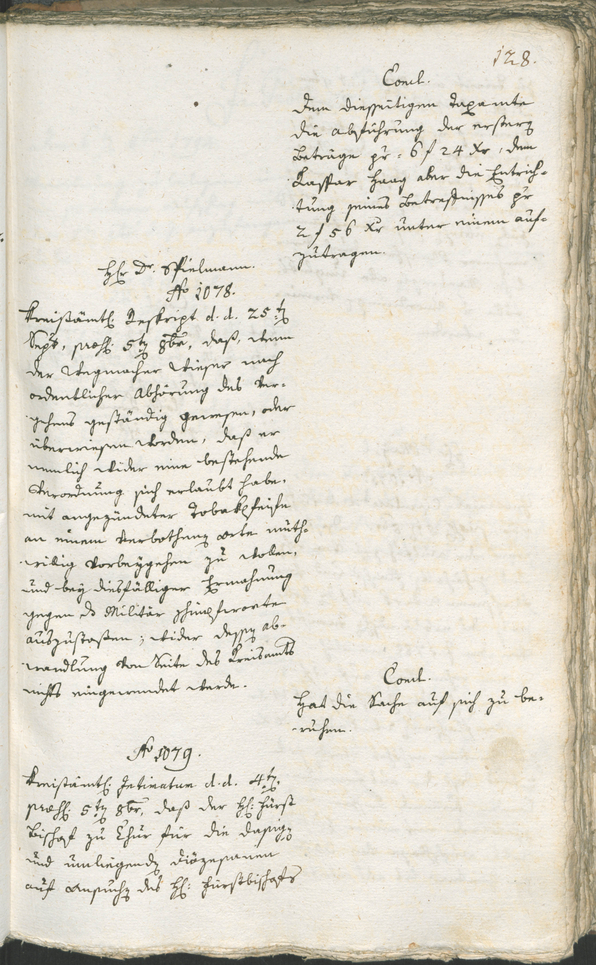 128.
Concl.
Dem diesseitigen Taxamte
die Abführung der erstern
Beträge pr: 6 f 24 Xr, dem
Kaspar Haag aber die Entrich-
tung seines Betreffnisses pr
2 f 56 Xr unter einem auf-
zutragen.
Hr Dr. Spielmann.
No 1078.
Kreisämtl. Reskript d. d. 25ten
Sept, præs. 5ten 8br, daß, wenn
der Wegmacher Wieser nach
ordentlicher Abhörung des Ver-
gehens geständig gewesen, oder
überwiesen worden, daß er
nemlich wider eine bestehende
Verordnung sich erlaubt habe,
mit angezündeter Tobakpfeife
an einem verbothenen Orte muth-
willig vorbeygehen zu wollen,
und bey diesfälliger Ermahnung
gegen das Militär Schimpfworte
auszustossen; wider dessen Ab-
wandlung von Seite des Kreisamts
nichts eingewendet werde.
Concl.
Hat die Sache auf sich zu be-
ruhen.
No 1079.
Kreisämtl. Intimatum d. d. 4ten,
præs. 5ten 8br, daß der H: Fürst
Bischof zu Chur für die dasigen
und umliegenden Diözesanen
auf Ansuchen des H: Fürstbischofs